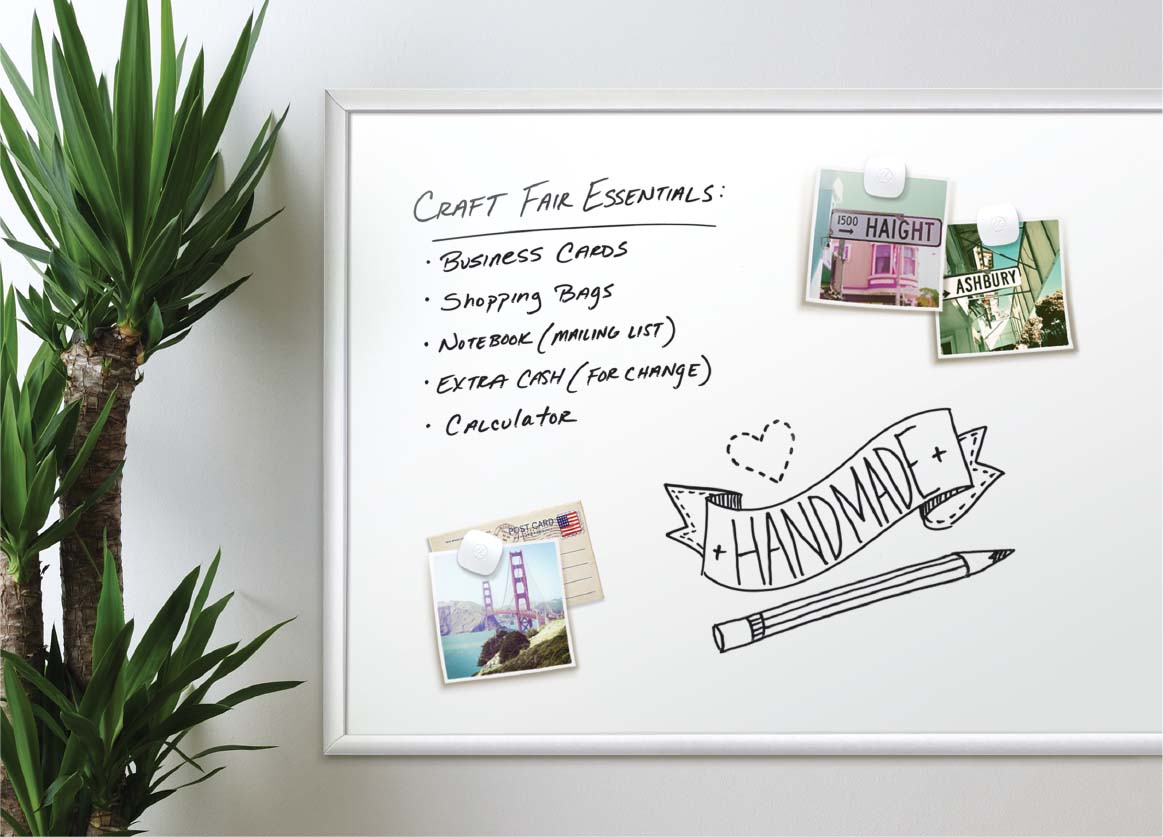 CRAFT FAIR ESSENTIALS:
• BUSINESS CARDS
• Shopping BAGS
• NOTEBOOK (MAILING LIST)
• EXTRA CASH (FOR CHANGE)
• CALCulatoR
1500 HAIGHT
ASHBURY
HANDMADE
POST CARD